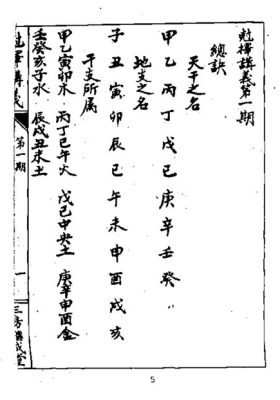 尅擇講義第一期
總訣
天干之名
甲乙丙丁戊己庚辛壬癸
地支之名
子丑寅卯辰巳午未申酉戌亥
干支所屬
甲乙寅卯木 丙丁巳午火 戊己中央土 庚辛申酉金
壬癸亥子水 辰戌丑未土
尅擇講義
第一期
一
5